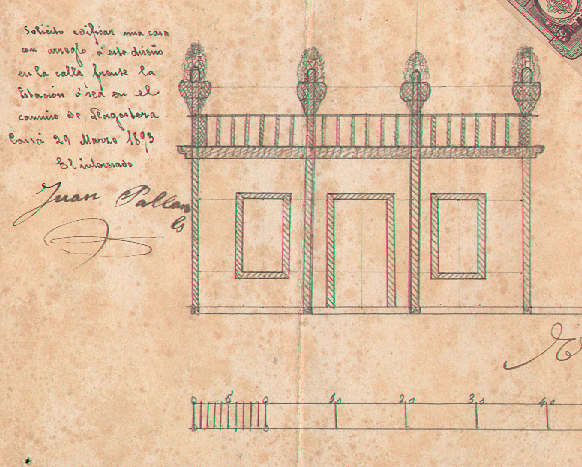 Solicito edificar una casa
con arreglo á este diseño
en la calle frente la
Estación ó sea en el
camino de Llagostera
Cassá 29 Marzo 1893
El interesado
Juan Pallam
0 5 0 10 20 30 40